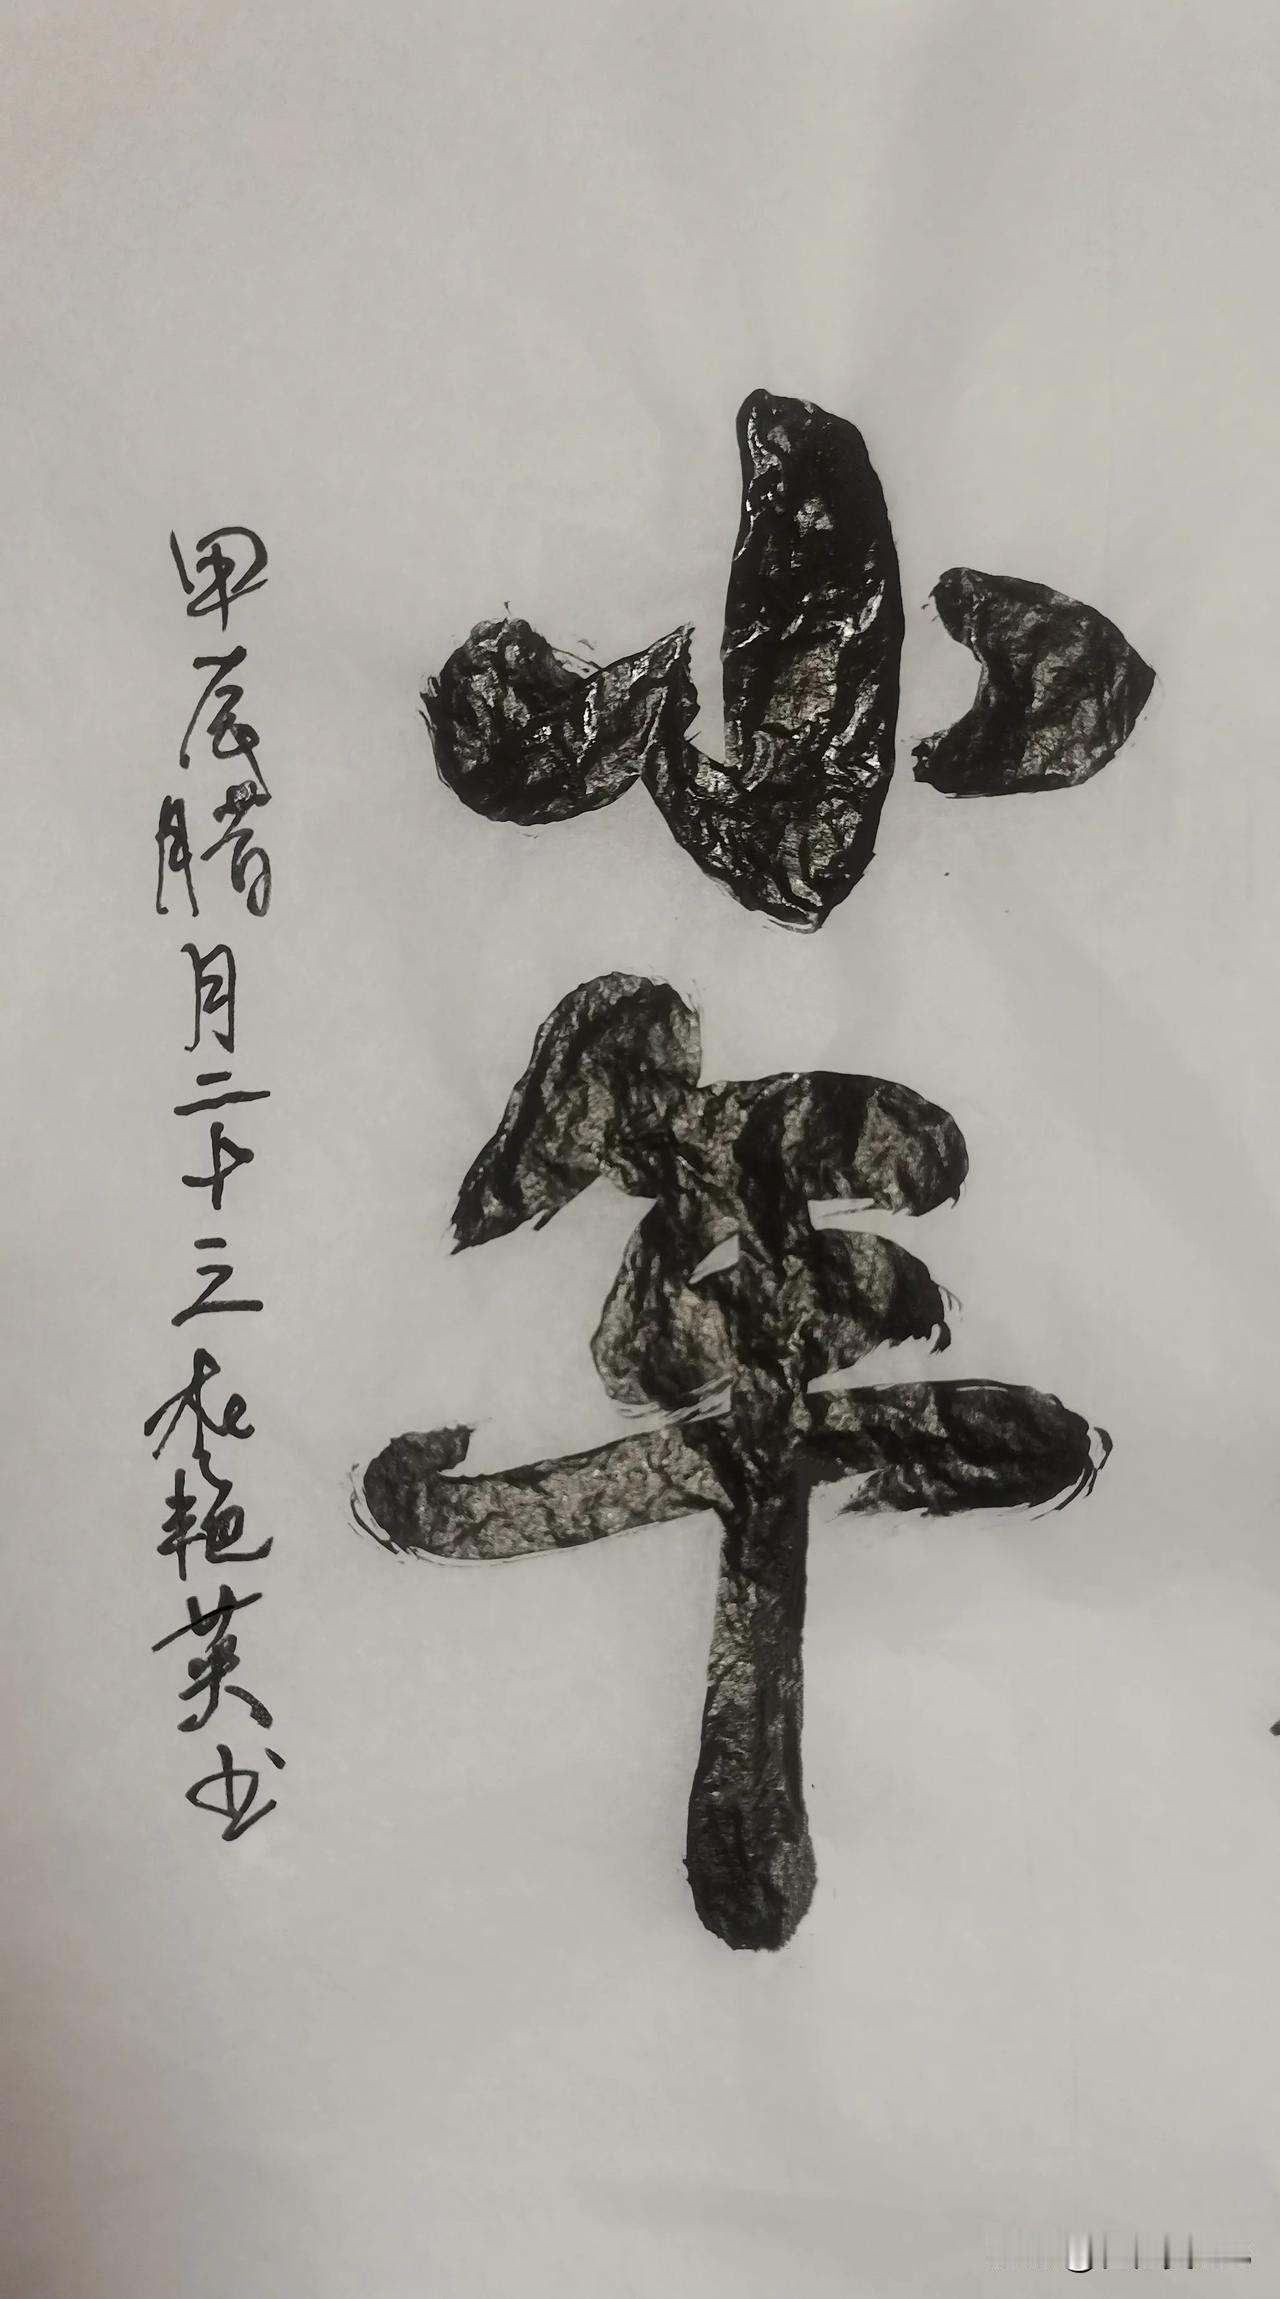 小年
甲辰腊月二十三李艳英书